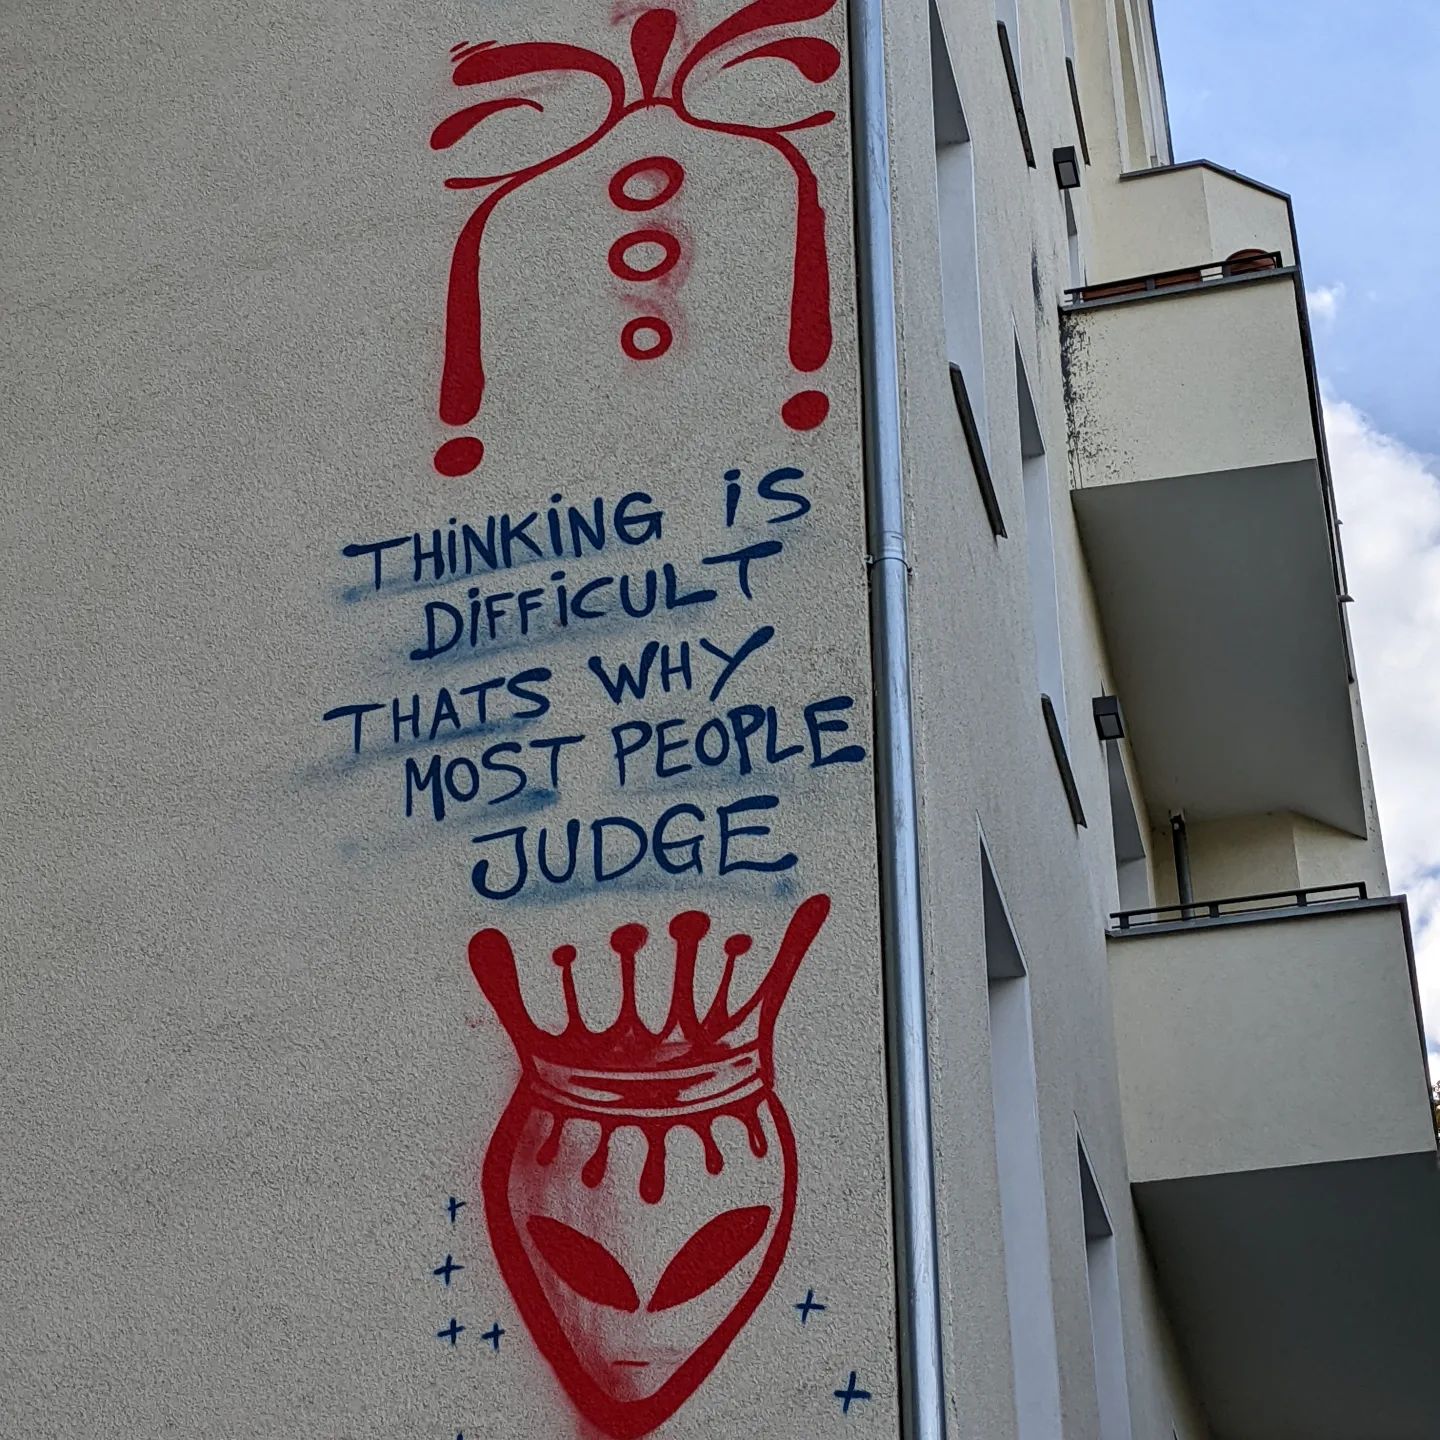 THiNKiNG iS
DiFFiCULT
THATS WHY
MOST PEOPLE
JUDGE